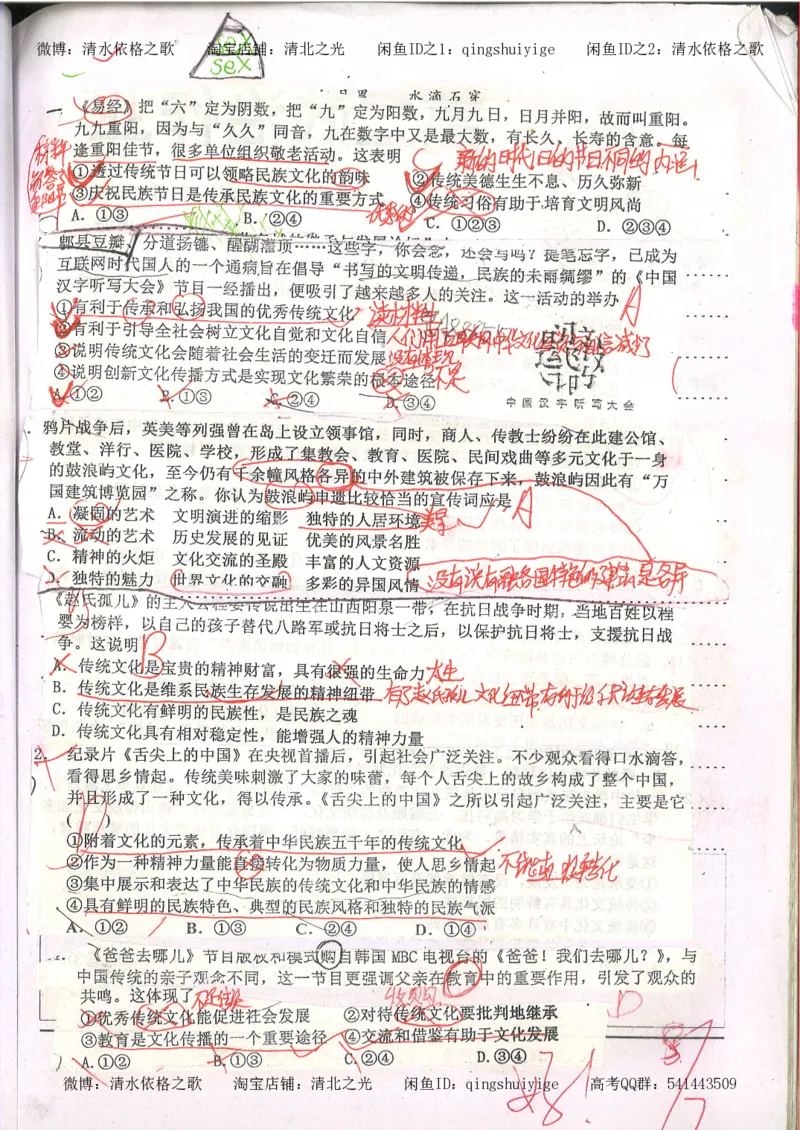 微博：清水依格之歌 淘宝店铺：清北之光 闲鱼ID之1：qingshuiyige 闲鱼ID之2：清水依格之歌
sex
水滴石穿
一 《易经》把“六”定为阴数，把“九”定为阳数，九月九日，日月并阳，故而叫重阳。
九九重阳，因为与“久久”同音，九在数字中又是最大数，有长久、长寿的含意。每
逢重阳佳节，很多单位组织敬老活动。这表明 C
新的时代旧的节日不同的内涵
①透过传统节日可以领略民族文化的韵味 ②传统美德生生不息、历久弥新
③庆祝民族节日是传承民族文化的重要方式 ④传统习俗有助于培育文明风尚
A. ①③ B. ②④ C. ①②③ D. ②③④
郫县豆瓣、分道扬镳、醍醐灌顶……这些字，你会念，还会写吗？提笔忘字，已成为
互联网时代国人的一个通病旨在倡导“书写的文明传递，民族的未雨绸缪”的《中国
汉字听写大会》节目一经播出，便吸引了越来越多人的关注。这一活动的举办 A
①有利于传承和弘扬我国的优秀传统文化
②有利于引导全社会树立文化自觉和文化自信
③说明传统文化会随着社会生活的变迁而发展 没有体现
④说明创新文化传播方式是实现文化繁荣的根本途径 不是
A. ①② B. ①③ C. ②④ D. ③④
中国汉字听写大会
鸦片战争后，英美等列强曾在岛上设立领事馆，同时，商人、传教士纷纷在此建公馆、
教堂、洋行、医院、学校，形成了集教会、教育、医院、民间戏曲等多元文化于一身
的鼓浪屿文化，至今仍有千余幢风格各异的中外建筑被保存下来，鼓浪屿因此有“万
国建筑博览园”之称。你认为鼓浪屿申遗比较恰当的宣传词应是 A
A. 凝固的艺术 文明演进的缩影 独特的人居环境
B. 流动的艺术 历史发展的见证 优美的风景名胜
C. 精神的火炬 文化交流的圣殿 丰富的人文资源
D. 独特的魅力 世界文化的交融 多彩的异国风情
《赵氏孤儿》的主人公程婴传说出生在山西阳泉一带，在抗日战争时期，当地百姓以程
婴为榜样，以自己的孩子替代八路军或抗日将士之后，以保护抗日将士，支援抗日战
争。这说明 B
A. 传统文化是宝贵的精神财富，具有很强的生命力
B. 传统文化是维系民族生存发展的精神纽带
C. 传统文化有鲜明的民族性，是民族之魂
D. 传统文化具有相对稳定性，能增强人的精神力量
2. 纪录片《舌尖上的中国》在央视首播后，引起社会广泛关注。不少观众看得口水滴答，
看得思乡情起。传统美味刺激了大家的味蕾，每个人舌尖上的故乡构成了整个中国，
并且形成了一种文化，得以传承。《舌尖上的中国》之所以引起广泛关注，主要是它
( )
①附着文化的元素，传承着中华民族五千年的传统文化
②作为一种精神力量能直接转化为物质力量，使人思乡情起
③集中展示和表达了中华民族的传统文化和中华民族的情感
④具有鲜明的民族特色、典型的民族风格和独特的民族气派
A. ①② B. ①③ C. ②④ D. ①④
《爸爸去哪儿》节目版权和模式购自韩国MBC电视台的《爸爸！我们去哪儿？》，与
中国传统的亲子观念不同，这一节目更强调父亲在教育中的重要作用，引发了观众的
共鸣。这体现了 D
①优秀传统文化能促进社会发展 ②对待传统文化要批判地继承
③教育是文化传播的一个重要途径 ④交流和借鉴有助于文化发展
A. ①② B. ①③ C. ②④ D. ③④
微博：清水依格之歌 淘宝店铺：清北之光 闲鱼ID：qingshuiyige 高考QQ群：541443509